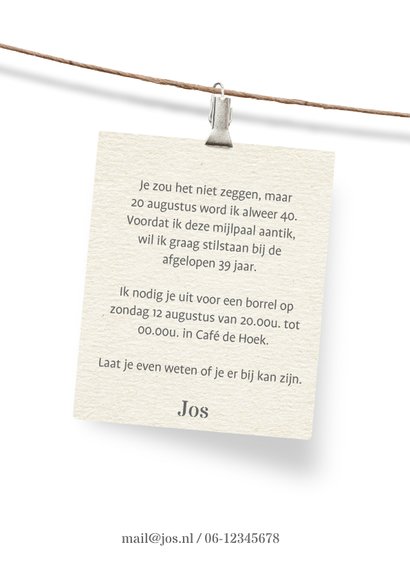 Je zou het niet zeggen, maar
20 augustus word ik alweer 40.
Voordat ik deze mijlpaal aantik,
wil ik graag stilstaan bij de
afgelopen 39 jaar.
Ik nodig je uit voor een borrel op
zondag 12 augustus van 20.00u. tot
00.00u. in Café de Hoek.
Laat je even weten of je er bij kan zijn.
Jos
mail@jos.nl / 06-12345678